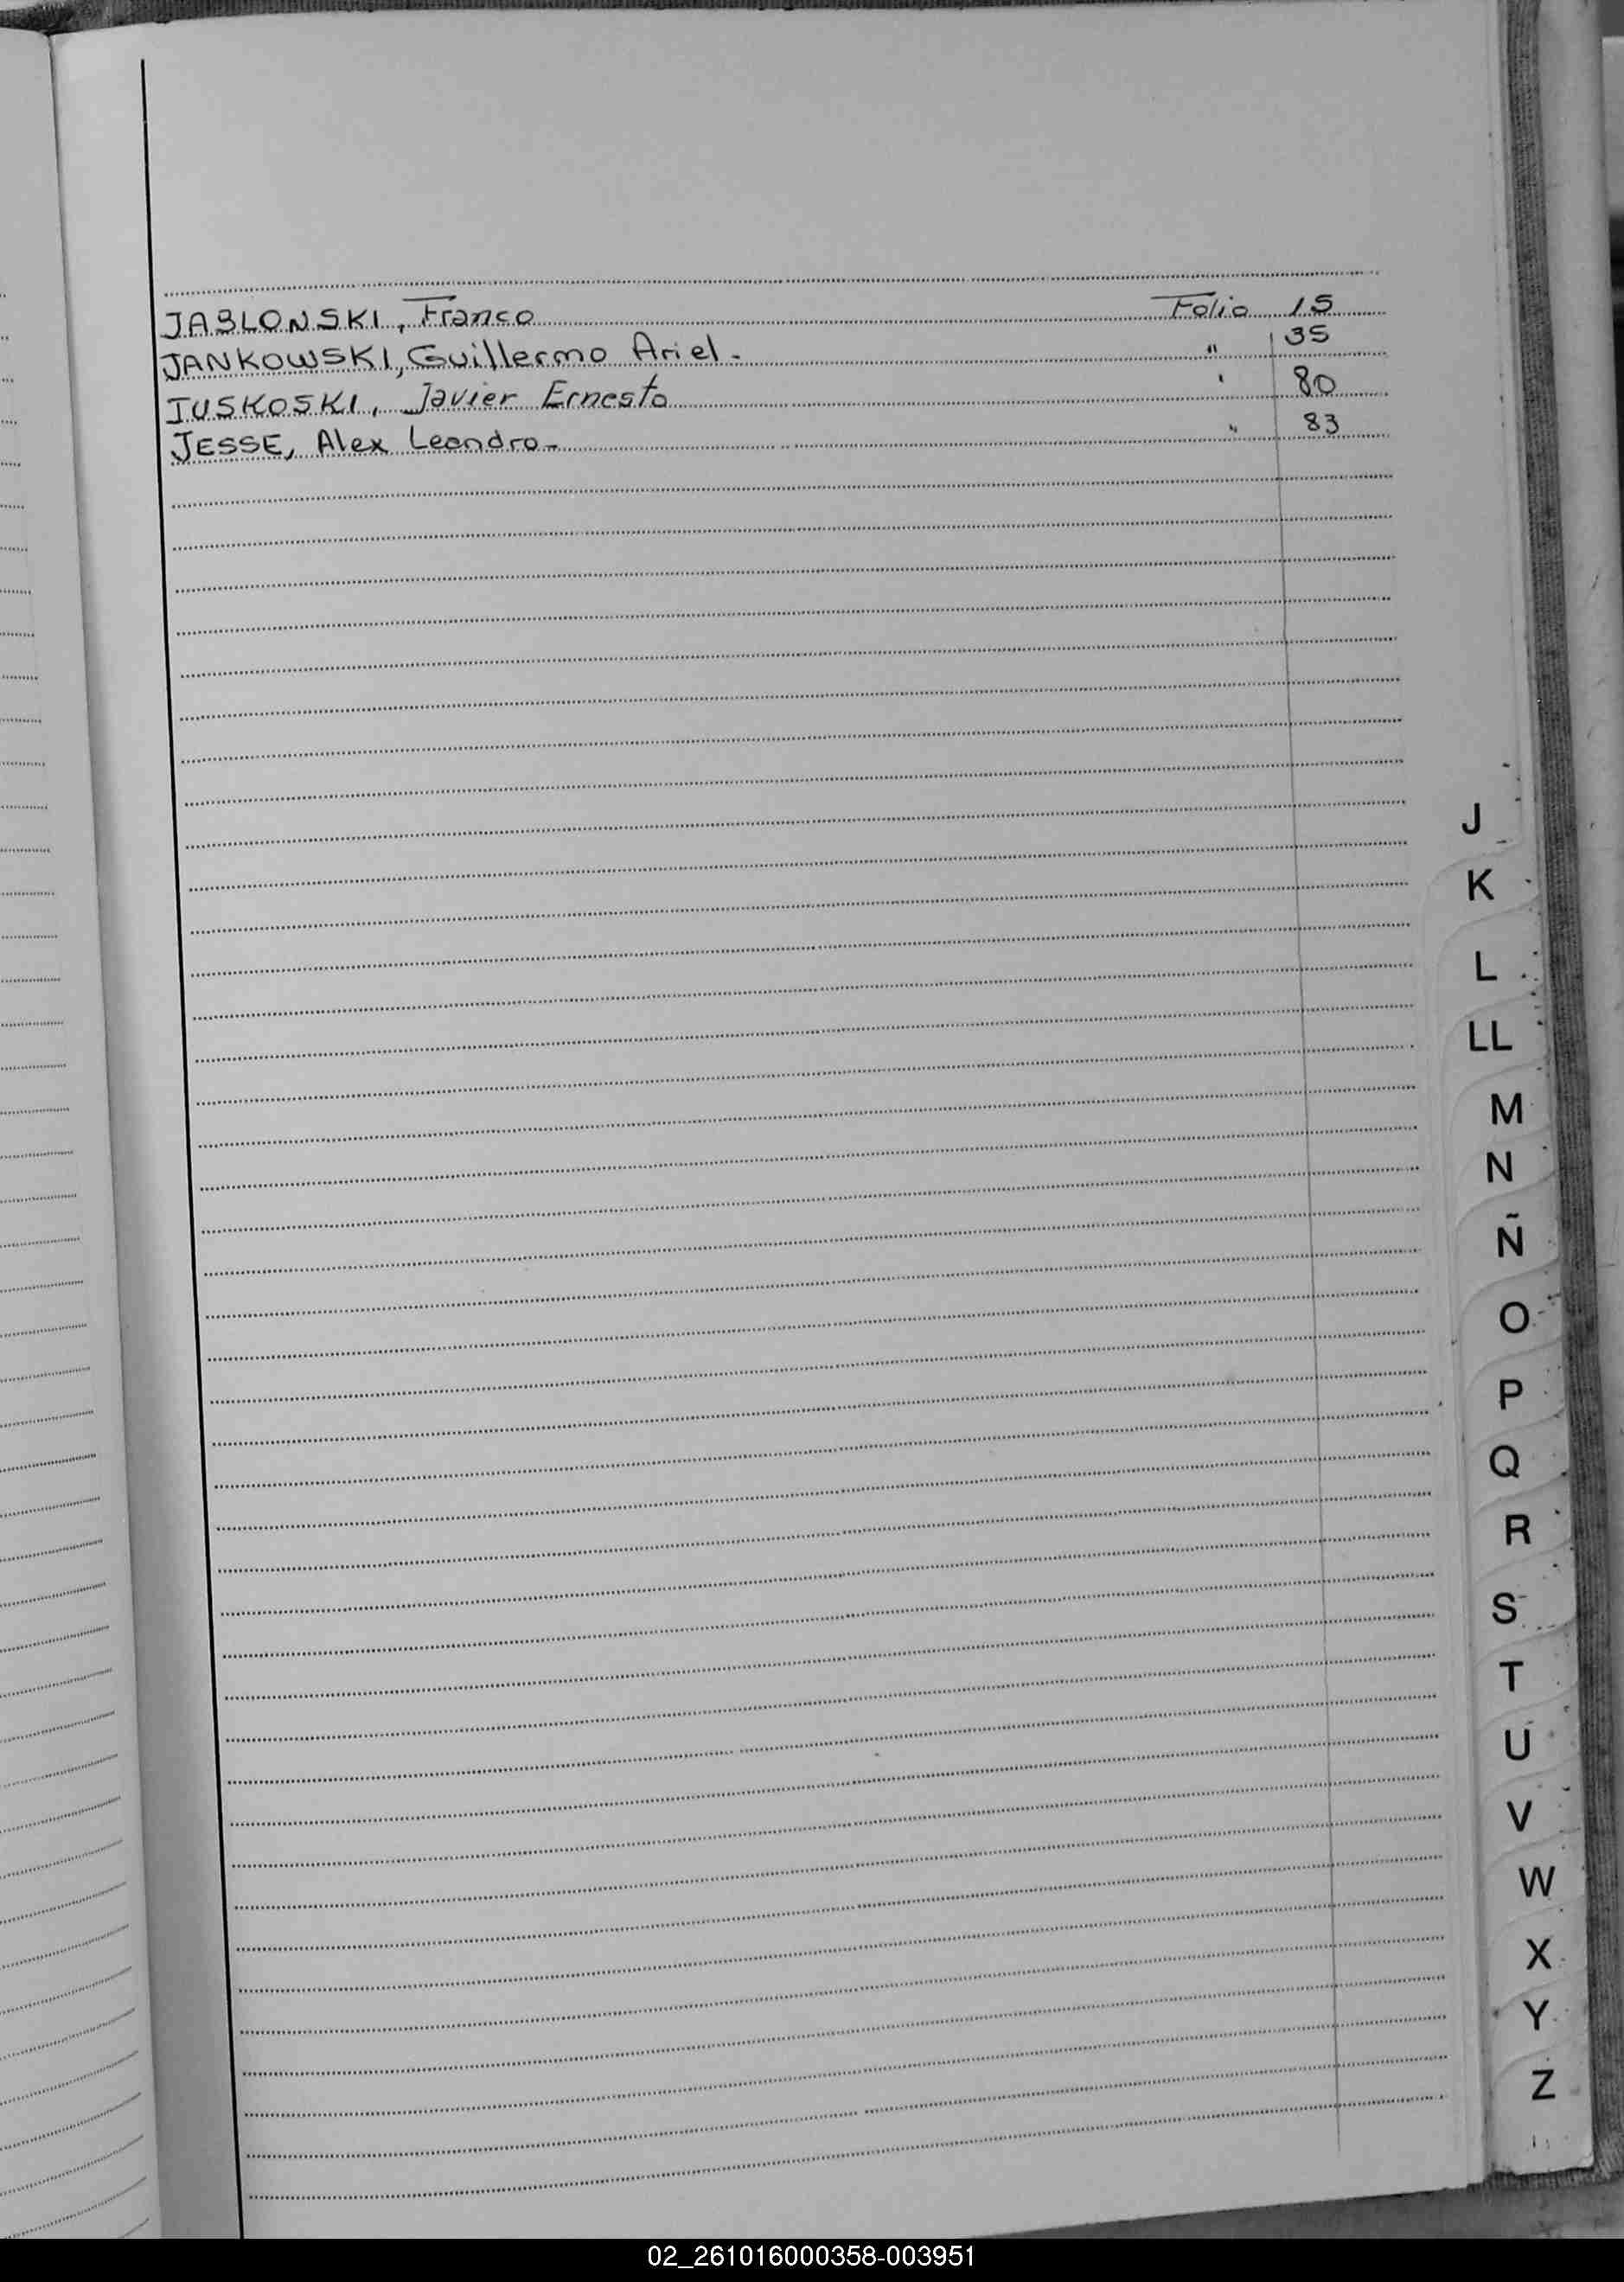 JABLONSKI, Franco Folio 15
JANKOWSKI, Guillermo Ariel - " 35
IUSKOSKI, Javier Ernesto " 80
JESSE, Alex Leandro - " 83
J
K
L
LL
M
N
Ñ
O
P
Q
R
S
T
U
V
W
X
Y
Z
02_261016000358-003951